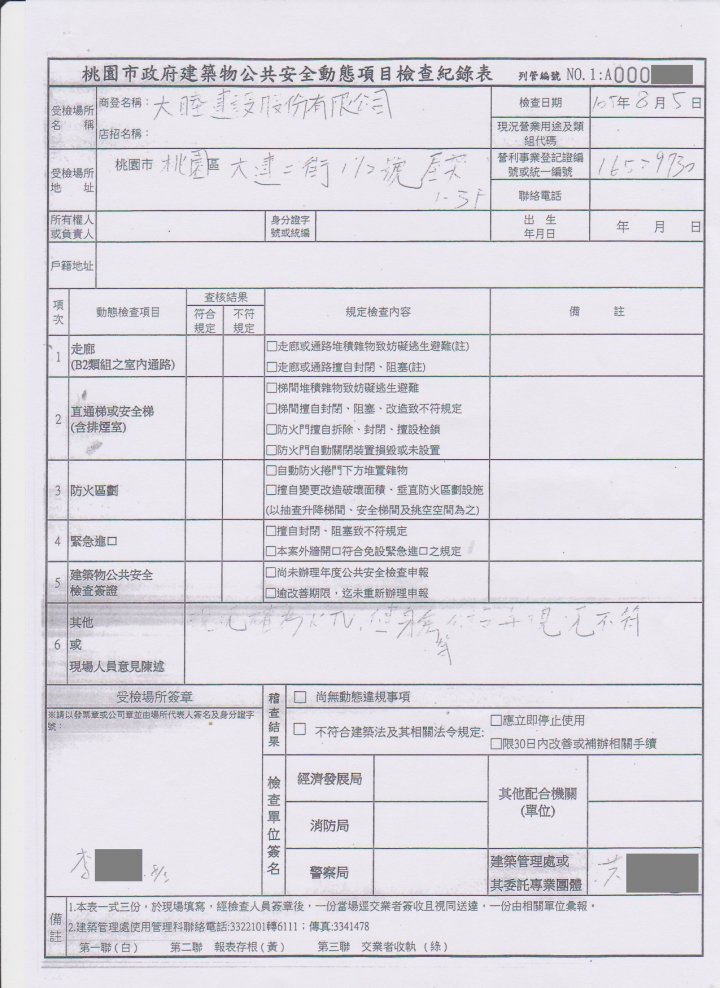 桃園市政府建築物公共安全動態項目檢查紀錄表 列管編號 NO.1:A000
受檢場所名稱
商登名稱: 大睦建設股份有限公司
店招名稱:
檢查日期 105年8月5日
現況營業用途及類組代碼
受檢場所地址
桃園市 桃園區 大連二街112號
1-3F
營利事業登記證編號或統一編號
聯絡電話
所有權人或負責人
身分證字號或統編
出生年月日
年 月 日
戶籍地址
項次
動態檢查項目
查核結果
符合規定
不符規定
規定檢查內容
備 註
1
走廊
(B2類組之室內通路)
□走廊或通路堆積雜物致妨礙逃生避難(註)
□走廊或通路擅自封閉、阻塞(註)
2
直通梯或安全梯
(含排煙室)
□梯間堆積雜物致妨礙逃生避難
□梯間擅自封閉、阻塞、改造致不符規定
□防火門擅自拆除、封閉、擅設栓鎖
□防火門自動關閉裝置損毀或未設置
3
防火區劃
□自動防火捲門下方堆置雜物
□擅自變更改造破壞面積、垂直防火區劃設施
(以抽查升降梯間、安全梯間及挑空空間為之)
4
緊急進口
□擅自封閉、阻塞致不符規定
□本案外牆開口符合免設緊急進口之規定
5
建築物公共安全
檢查簽證
□尚未辦理年度公共安全檢查申報
□逾改善期限，迄未重新辦理申報
6
其他
或
現場人員意見陳述
現況不符
受檢場所簽章
※請以發票章或公司章並由場所代表人簽名及身分證字號:
李
稽查結果
□ 尚無動態違規事項
□ 不符合建築法及其相關法令規定:
□應立即停止使用
□限30日內改善或補辦相關手續
檢查單位簽名
經濟發展局
消防局
警察局
其他配合機關
(單位)
建築管理處或
其委託專業團體
備註
1.本表一式三份，於現場填寫，經檢查人員簽章後，一份當場逕交業者簽收且視同送達，一份由相關單位彙報。
2.建築管理處使用管理科聯絡電話:3322101轉6111；傳真:3341478
第一聯(白) 第二聯 報表存根(黃) 第三聯 交業者收執 (綠)